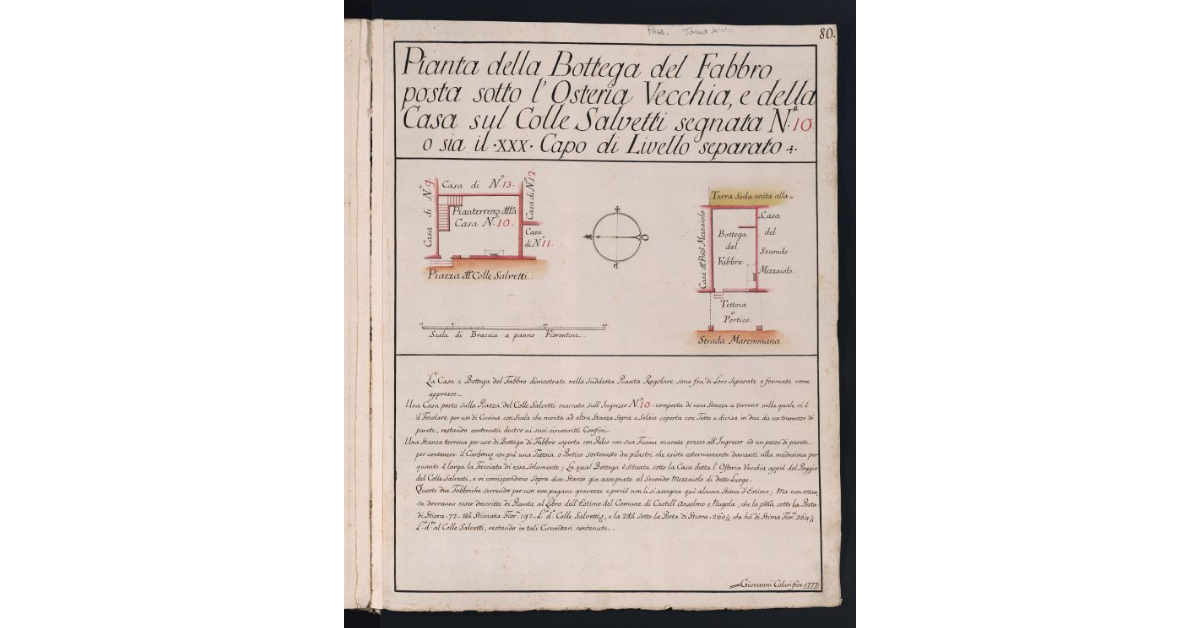 80.
Pianta della Bottega del Fabbro
posta sotto l'Osteria Vecchia, e della
Casa sul Colle Salvetti segnata N.º 10.
o sia il ·XXX· Capo di Livello separato
Casa di N.º 9.
Casa di N.º 13.
Casa di N.º 12.
Pianterreno della
Casa N.º 10.
Casa
di N.º 11.
Piazza del Colle Salvetti.
Scala di Braccia a panno Fiorentine.
Terra Soda unita alla
Casa del Mezzaiolo
Bottega
del
Fabbro
Casa
del
Secondo
Mezzaiolo
Tettoia
o
Portico
Strada Maremmana
La Casa e Bottega del Fabbro dimostrate nella Suddetta Pianta Regolare sono fra di Loro Separate e formate come
appresso
Una Casa posta sulla Piazza del Colle Salvetti marcata sull'Ingresso N.º 10 composta di una Stanza a terreno nella quale vi è
il Focolare per uso di Cucina con Scala che monta ad altra Stanza Sopra a Solaio coperta con Tetto e divisa in due da un tramezzo di
parete, restando contenuta dentro ai suoi circoscritti Confini.
Una Stanza terrena per uso di Bottega di Fabbro coperta con Palco con sua Fucina murata presso all'Ingresso ed un pezzo di parete
per contenere il Carbone con più una Tettoia o Portico sostenuto da pilastri che esiste esternamente davanti alla medesima per
quanto è larga la Facciata di essa Solamente; La qual Bottega è Situata sotto la Casa detta l'Osteria Vecchia appiè del Poggio
del Colle Salvetti, e vi corrispondono Sopra due Stanze già assegnate al Secondo Mezzaiolo di detto Luogo.
Queste due Fabbriche servendo per uso non pagano gravezze e perciò non li si assegna qui alcuna Stima d'Estimo; Ma
se dovranno esser descritte di Pianta al Libro dell'Estimo del Comune di Castell'Anselmo e Nugola, che la p.ma sotto la Posta
di Stiora 77 Stimata Fior. 197 Colle Salvetti, e la sotto la Posta di Stiora di Stima Fior.
al Colle Salvetti, restando in tali Circondari contenute.
Giovanni 1777